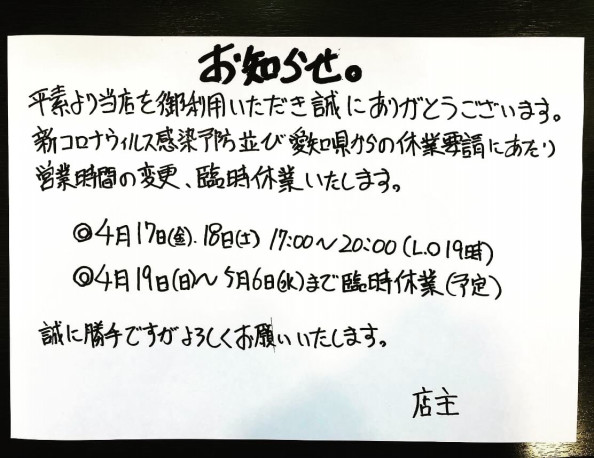 お知らせ。
平素より当店を御利用いただき誠にありがとうございます。
新コロナウィルス感染予防並び愛知県からの休業要請にあたり
営業時間の変更、臨時休業いたします。
◎4月17日(金).18日(土) 17:00〜20:00(L.O 19時)
◎4月19日(日)〜5月6日(水)まで臨時休業(予定)
誠に勝手ですがよろしくお願いいたします。
店主